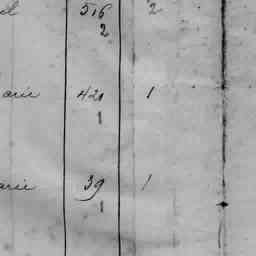 516 2
2
arie 421 1
1
arie 39 1
1